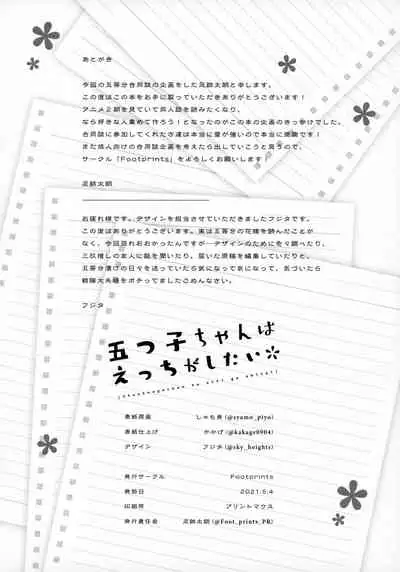 あとがき
今回の五等分合同誌の企画をした足跡太朗と申します。
この度はこの本をお手に取っていただきありがとうございます！
アニメ２期を見ていて同人誌を読みたくなり、
なら好きな人集めて作ろう！となったのがこの本のきっかけでした。
合同誌に参加してくれた方達は本当に愛が強いので本当に感謝です！
また成人向けの合同誌企画を考えたら出していこうと思うので、
サークル「Footprints」をよろしくお願いします！
足跡太朗
お疲れ様です。デザインを担当させていただきましたフジタです。
この度はありがとうございます。実は五等分の花嫁を読んだことが
なく、今回恐れおおかったんですがーデザインのために色々調べたり、
三玖推しの友人に話を聞いたり、届いた原稿を編集していたりと
五等分漬けの日々を送っていたら気になって気になって、気づいたら
をポチってましたごめんなさい。
フジタ
五つ子ちゃんは
えっちがしたい
表紙原画 しゃち豚(@syamo_piyo)
表紙仕上げ かかげ(@kakage0904)
デザイン フジタ(@sky_heights)
発行サークル Footprints
発効日 2021.5.4
印刷所 プリントマウス
発行責任者 足跡太朗(@Foot_prints_PR)